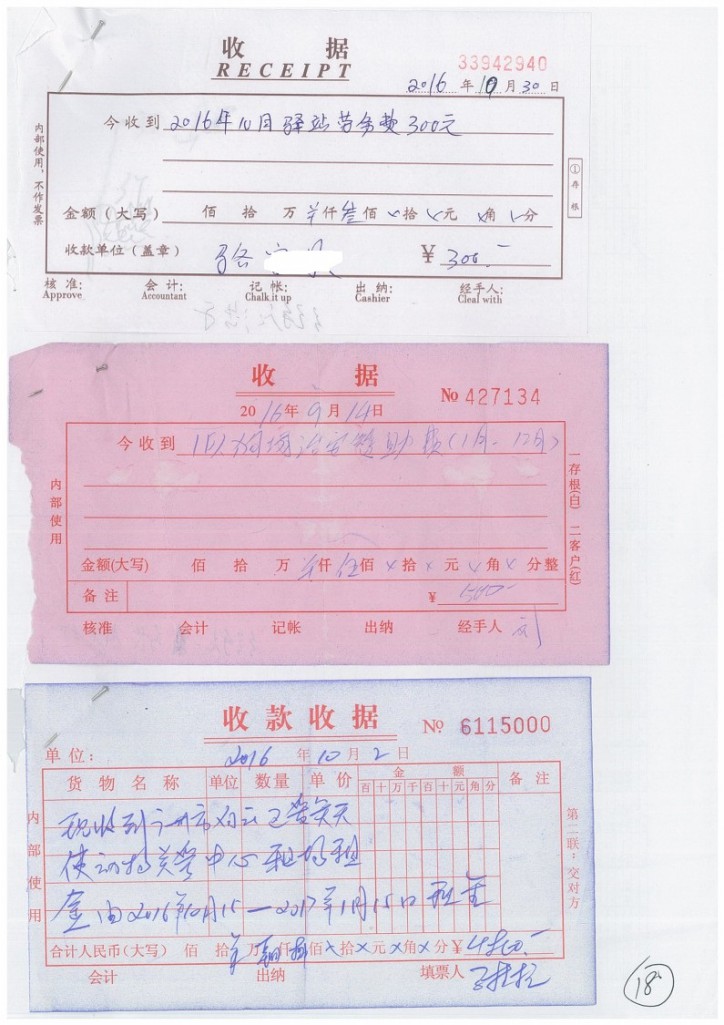 收 据
RECEIPT
33942940
2016 年 10 月 30 日
内部使用，不作发票
今收到 2016年10月驿站劳务费300元
①存根
金额（大写） 佰 拾 万 仟 叁佰 × 拾 × 元 × 角 分
收款单位（盖章） 骆
¥ 300.-
核准: 会计: 记帐: 出纳: 经手人:
Approve Accountant Chalk it up Cashier Cleal with
收 据
No 427134
2016年 9 月 14 日
今收到 助费（1月-12月）
内部使用
一存根(白) 二客户(红)
金额(大写) 佰 拾 万 仟 伍佰 × 拾 × 元 × 角 × 分整
备注 ¥ 500-
核准 会计 记帐 出纳 经手人 刘
收款收据
No 6115000
单位： 2016 年 10 月 2 日
货物名称 单位 数量 单价 金额 备注
百 十 万 千 百 十 元 角 分
内部使用
第二联：交对方
现收到广州市
使动物关爱中心租场租
金由2016年10月15—2017年1月15日租金
合计人民币（大写） 佰 拾 万 仟 捌佰 × 拾 × 元 × 角 × 分 ¥ 4800.-
会计 出纳 填票人
18